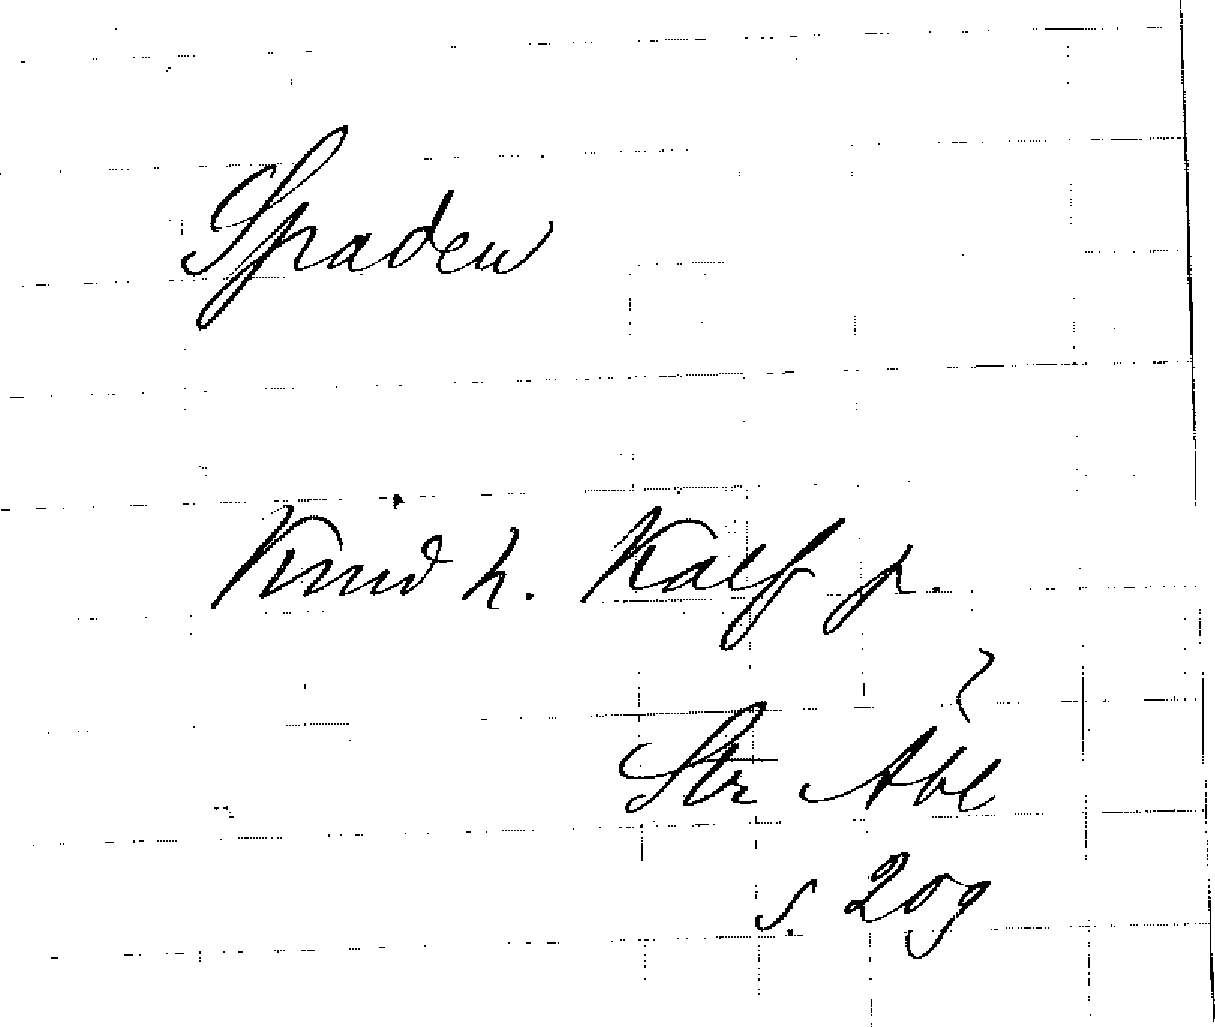 Spaden
Knud h. Kalf p.
Str Åbl
s. 209